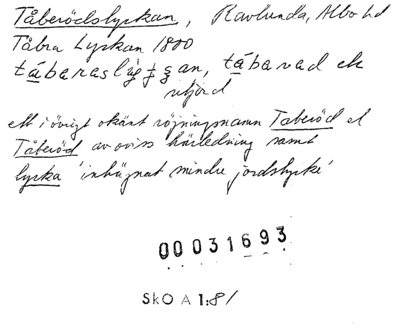 Tåberödslyckan, Ravlunda, Albo hd
Tåbra Lyckan 1800
utjord
ett i övrigt okänt röjningsnamn Taberöd el
Tåberöd av oviss härledning samt
lycka 'inhägnat mindre jordstycke'
00031693
SkO A 1:8/